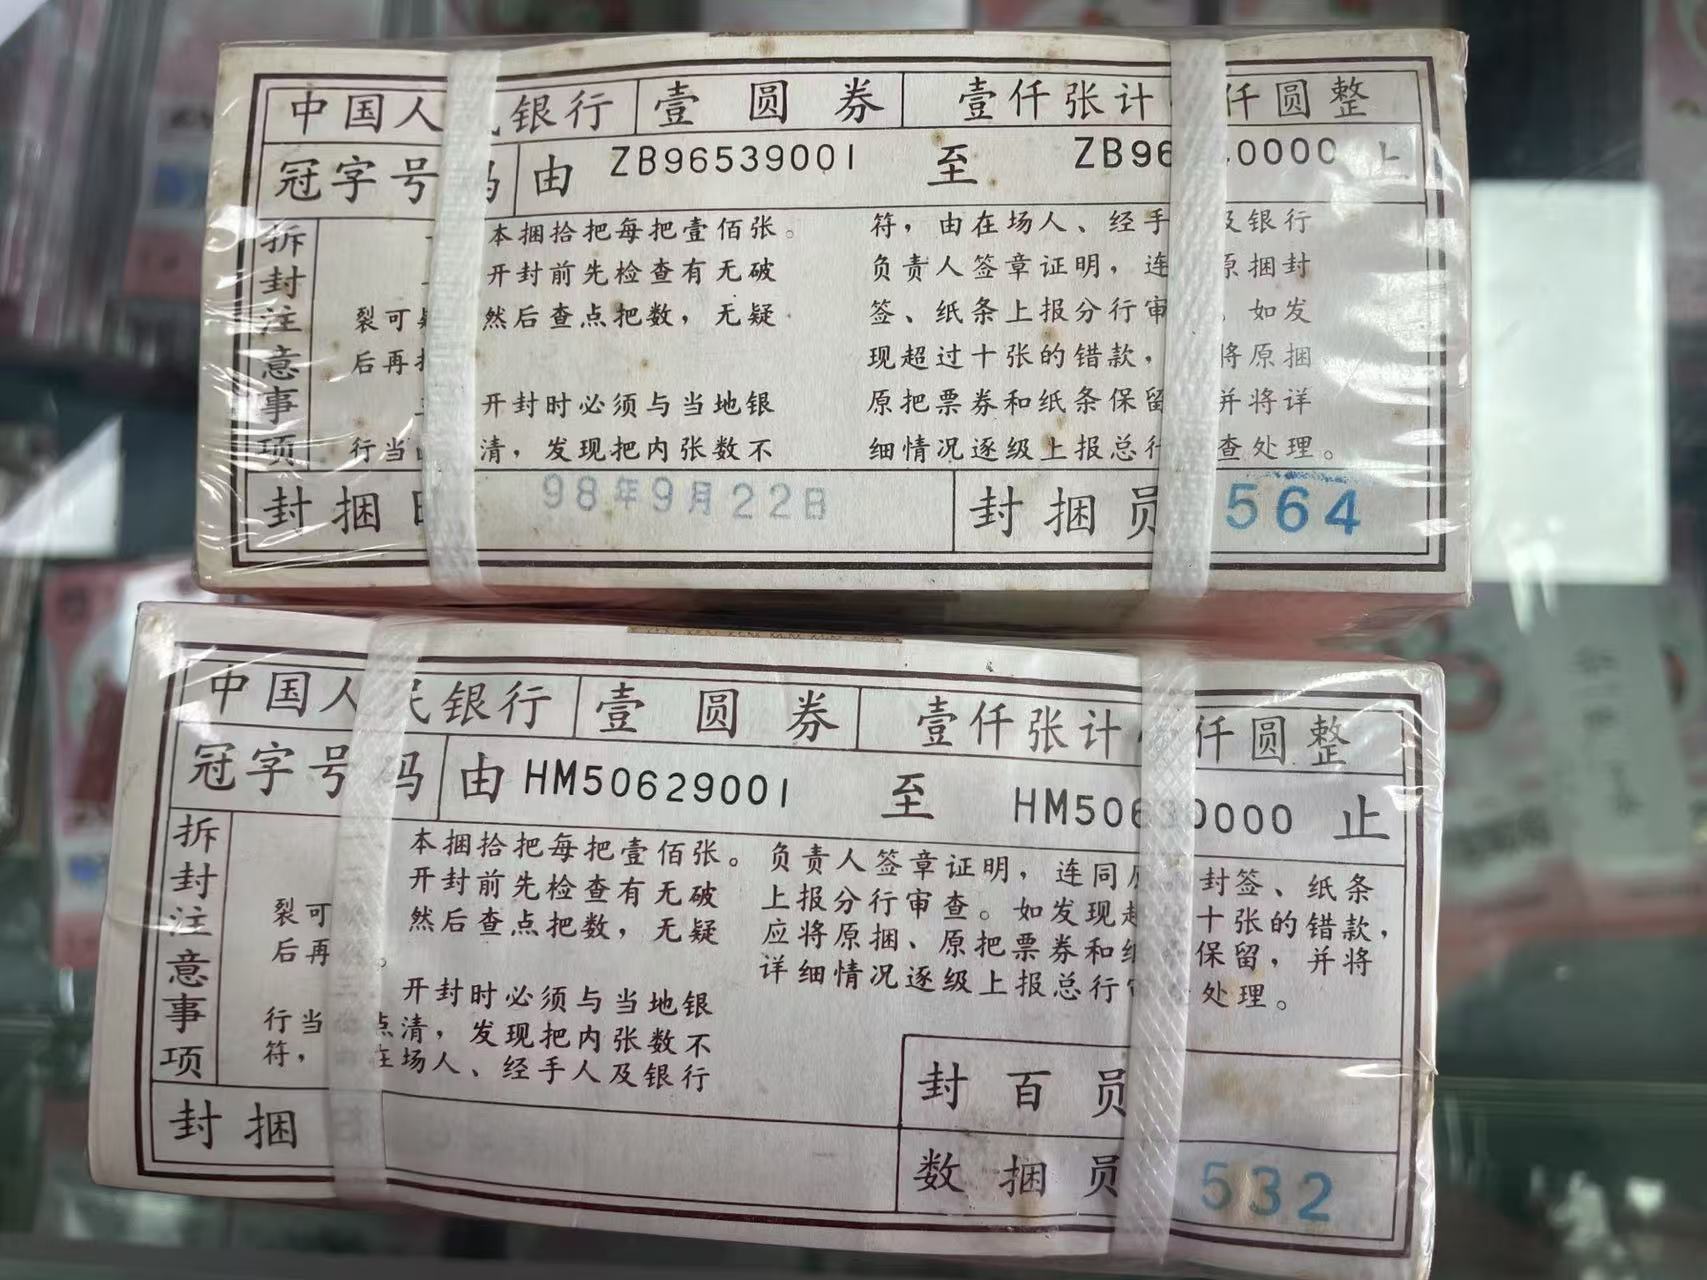 中国人 银行 壹圆券 壹仟张计 仟圆整
冠字号码 由 ZB96539001 至 ZB96 0000 止
拆封注意事项
本捆拾把每把壹佰张。
开封前先检查有无破
裂可 然后查点把数，无疑
后再
开封时必须与当地银
行当 清，发现把内张数不
符，由在场人、经手 及银行
负责人签章证明，连 原捆封
签、纸条上报分行审 。如发
现超过十张的错款， 将原捆
原把票券和纸条保留 并将详
细情况逐级上报总行 查处理。
封捆 98年9月22日 封捆员 564
中国人民银行 壹圆券 壹仟张计 仟圆整
冠字号码 由 HM50629001 至 HM50630000 止
拆封注意事项
本捆拾把每把壹佰张。
开封前先检查有无破
裂可 然后查点把数，无疑
后再 。
开封时必须与当地银
行当 点清，发现把内张数不
符， 在场人、经手人及银行
负责人签章证明，连同 封签、纸条
上报分行审查。如发现超 十张的错款，
应将原捆、原把票券和纸 保留，并将
详细情况逐级上报总行 处理。
封捆
封百员
数捆员 532